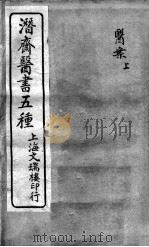 醫案上
潛齋醫書五種
上海文瑞樓印行